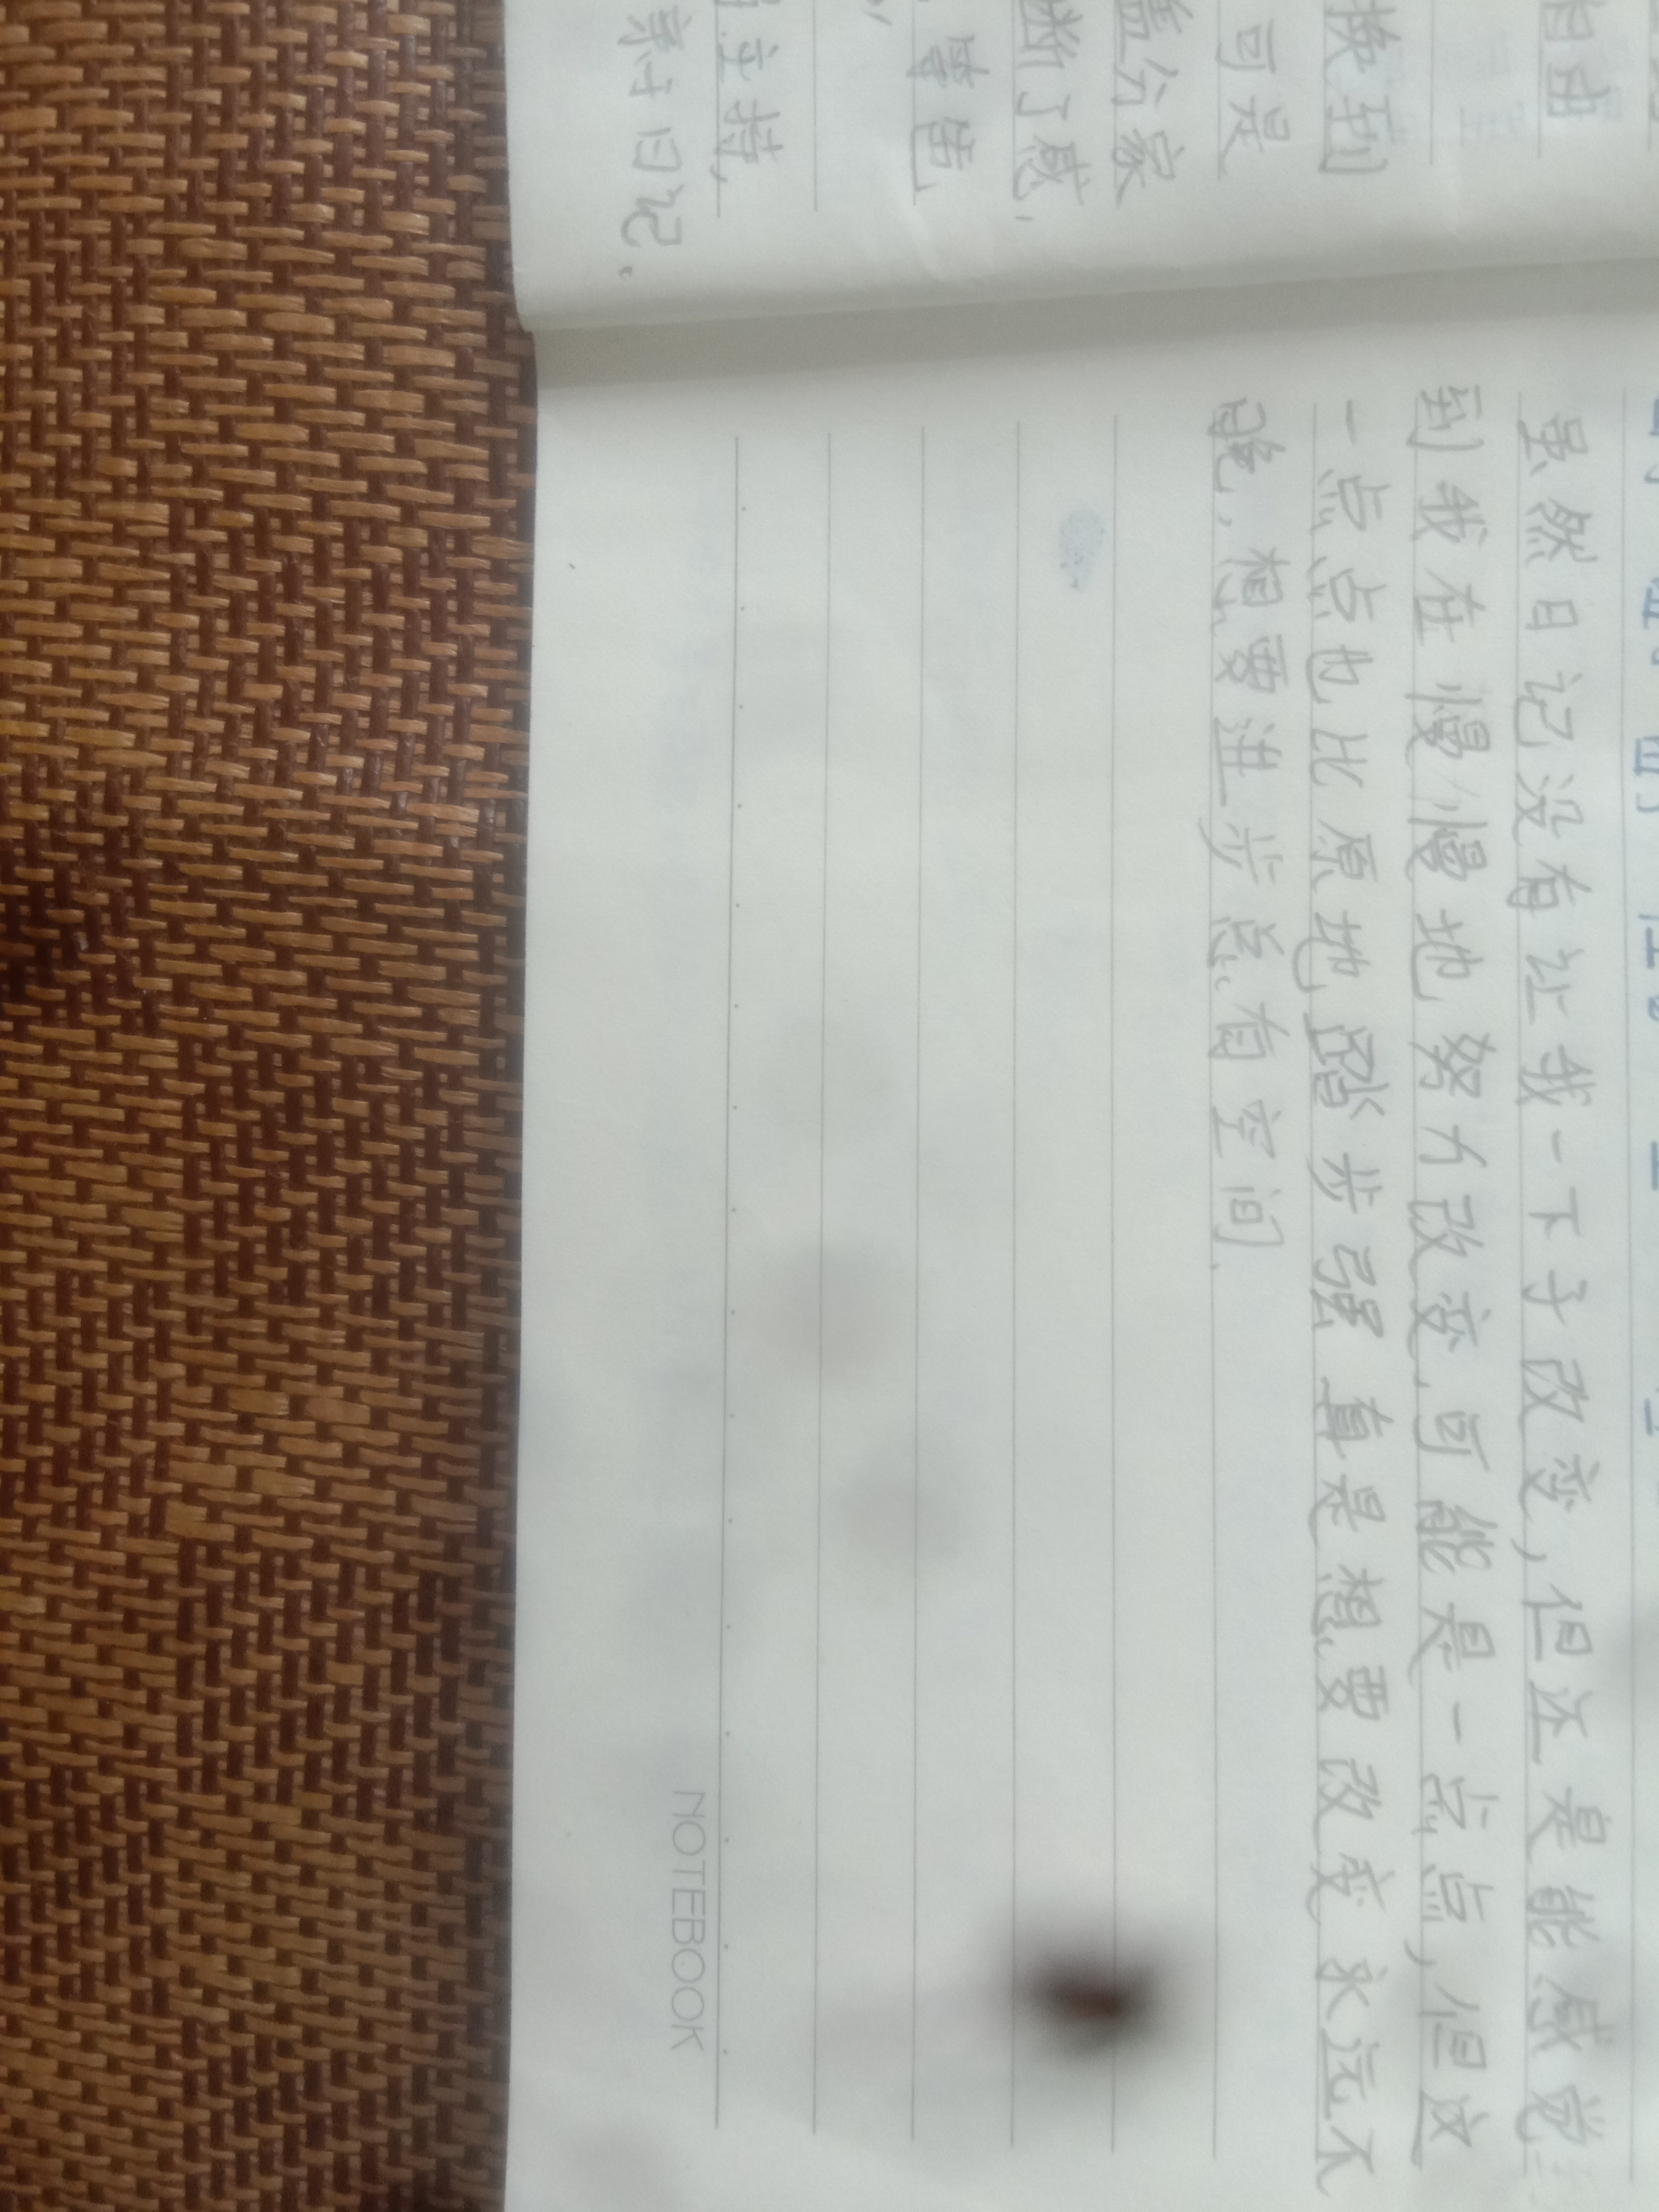 相由
换到
可是
盖分家
断了感,
, 警笆
主持,
亲十日记.
虽然日记没有让我一下子改变,但还是能感觉
到我在慢慢地努力改变,可能是一点点,但这
一点点也比原地踏步强 真是想要改变永远不
晚,想要进步总有空间.
NOTEBOOK